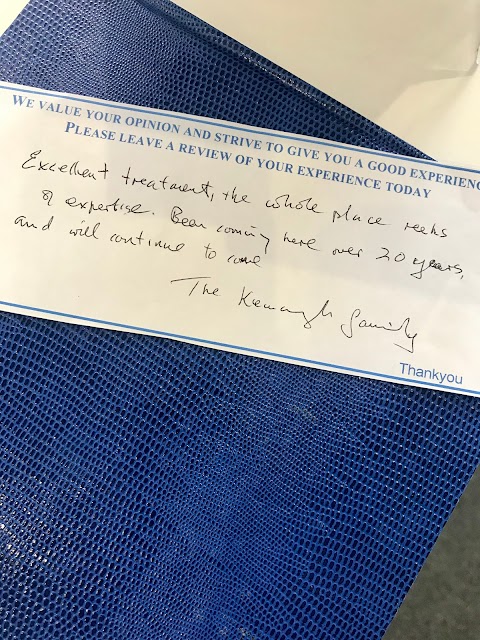 WE VALUE YOUR OPINION AND STRIVE TO GIVE YOU A GOOD EXPERIENC
PLEASE LEAVE A REVIEW OF YOUR EXPERIENCE TODAY
Excellent treatment, the whole place reeks
of expertise. Been coming here over 20 years,
and will continue to come
The family
Thankyou